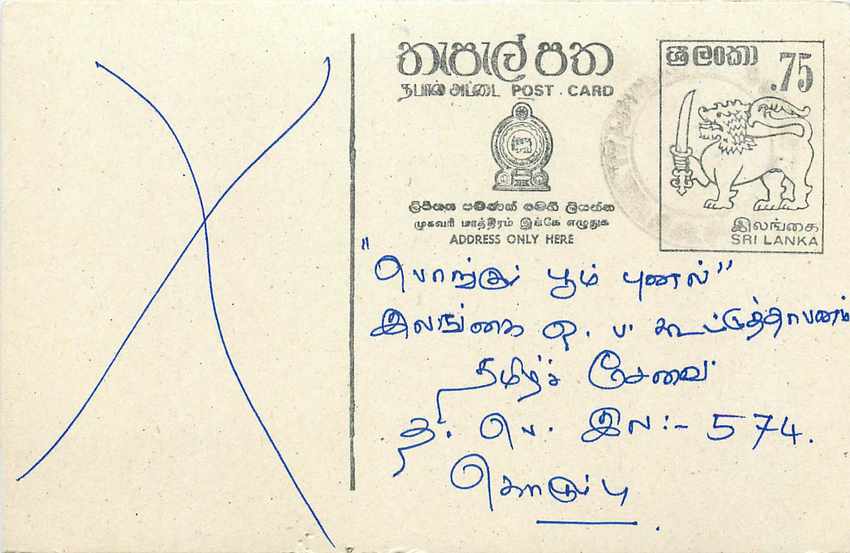 තැපැල් පත
தபால் அட்டை POST CARD
ශ්‍රී ලංකා
.75
இலங்கை
SRI LANKA
ලිපිනය පමණක් මෙහි ලියන්න
முகவரி மாத்திரம் இங்கே எழுதுக
ADDRESS ONLY HERE
"பொங்கும் பூம் புனல்"
இலங்கை ஒ. ப. கூட்டுத்தாபனம்
தமிழ்ச் சேவை
த. பெ. இல :- 574.
கொழும்பு